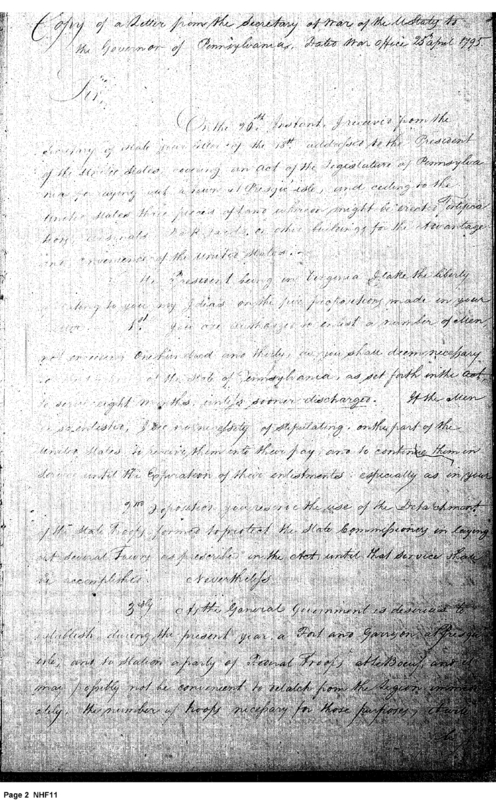 Copy of a Letter from the Secretary of War of the U States to
the Governor of Pennsylvania, dated War office 25th April 1795
Sir,
On the 20th Instant, I received from the
Secretary of State your letter of the 18th addressed to the President
of the United States, covering an Act of the Legislature of Pennsylva
nia for laying out a town at Presqu isle, and ceding to the
United States three pieces of land whereon might be erected Fortifica
tions Arsenals or other buildings for the Advantage
and convenience of the United States.
The President being in Virginia I take the liberty
to you my Ideas on the five propositions made in your
letter. 1st You are authorized to enlist a number of Men
not exceeding One hundred and thirty, as you shall deem necessary
of the State of Pennsylvania, as set forth in the Act,
to serve eight months, unless sooner discharged. If the Men
enlisted, I see no necessity of stipulating on the part of the
United States to receive them into their pay and to continue them in
service until the Expiration of their enlistments especially as in your
2nd Proposition you reserve the use of the Detachment
of the State Troops formed to protect the State Commissioners in laying
out several Towns as prescribed in the Act, until that service shall
be accomplished. Nevertheless
3rdly As the General Government is desirous to
establish during the present year a Fort and Garrison at Presqu
isle, and to station a party of Federal Troops at LeBoeuf, and it
may possibly not be convenient to detach from the Legion immedi
ately the number of Troops necessary for those purposes,
Page 2 NHF11